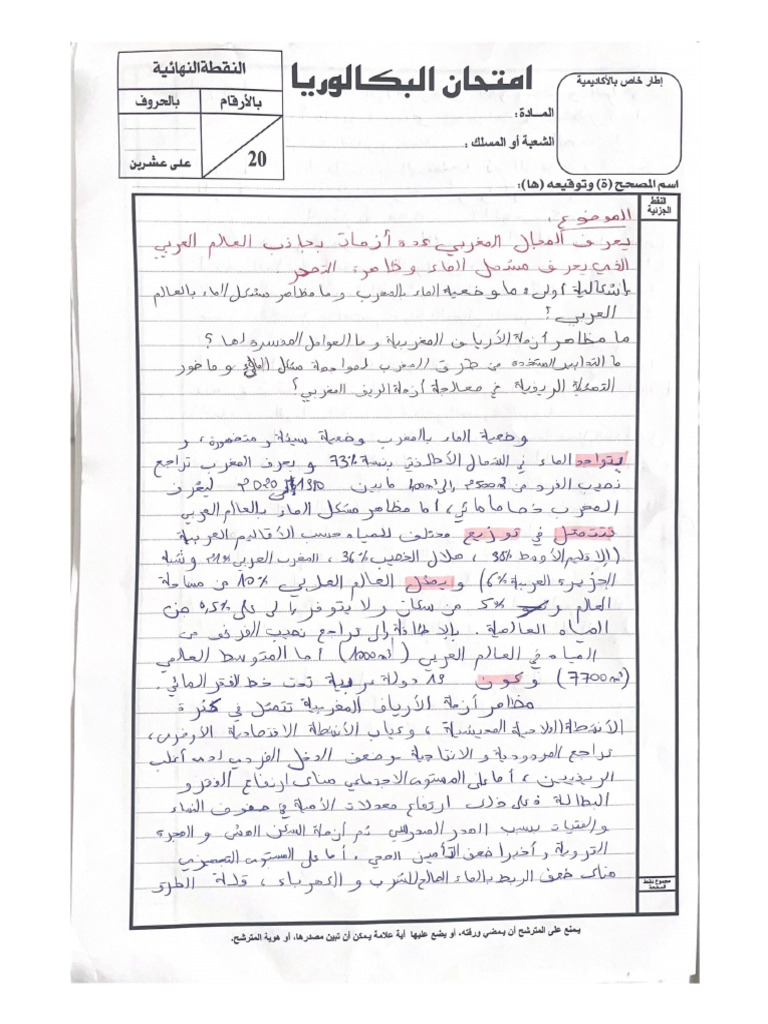 امتحان البكالوريا
إطار خاص بالأكاديمية
النقطة النهائية
بالأرقام
بالحروف
20
على عشرين
المادة :
الشعبة أو المسلك :
اسم المصحح (ة) وتوقيعه (ها):
النقط الجزئية
الموضوع :
يعرف المجال المغربي عدة أزمات بجانب العالم العربي
الذي يعرف مشكل الماء وظاهرة التصحر.
إشكالية أولى: ما وضعية الماء بالمغرب وما مظاهر مشكل الماء بالعالم
العربي؟
ما مظاهر أزمة الأرياف المغربية و ما العوامل المفسرة لها ؟
ما التدابير المتخذة من طرف المغرب لمواجهة مشكل الماء و ما دور
التنمية الريفية في معالجة أزمة الريف المغربي؟
وضعية الماء بالمغرب وضعية سيئة و متدهورة، و
يتواجد الماء في الشمال الأطلنتي بنسبة 73% و يعرف المغرب تراجع
نصيب الفرد من 2500m³ إلى ما بين 2020 ليعرف
المغرب خصاصا مائي، أما مظاهر مشكل الماء بالعالم العربي
تتمثل في توزيع مختلف للمياه حسب الأقاليم العربية
(الإقليم الأوسط 35%، هلال الخصيب 36%، المغرب العربي 21% وشبه
الجزيرة العربية 6%) و يمثل العالم العربي 10% من مساحة
العالم و 5% من سكان و لا يتوفر إلى على 0,5% من
المياه العالمية. بالإضافة إلى تراجع نصيب الفرد من
المياه في العالم العربي (1000m³) أما المتوسط العالمي
(7700m³) و كون 19 دولة عربية تحت خط الفقر المائي.
مظاهر أزمة الأرياف المغربية تتمثل في كثرة
الأنشطة الفلاحية المعيشية، و غياب الأنشطة الاقتصادية الأخرى،
تراجع المردودية و الانتاجية وضعف الدخل الفردي لدى أغلب
الريفيين، أما على المستوى الاجتماعي هناك ارتفاع الفقر و
البطالة فعلى ذلك ارتفاع معدلات الأمية في صفوف النساء
والفتيات بسبب الهدر المدرسي ثم أزمة السكن الهش و الهجرة
القروية و أخيرا ضعف التأمين الصحي، أما على المستوى التجهيزي
هناك ضعف الربط بالماء الصالح للشرب و الكهرباء، قلة الطرق
مجموع نقط الصفحة
يمنع على المترشح أن يمضي ورقته، أو يضع عليها أية علامة يمكن أن تبين مصدرها، أو هوية المترشح.